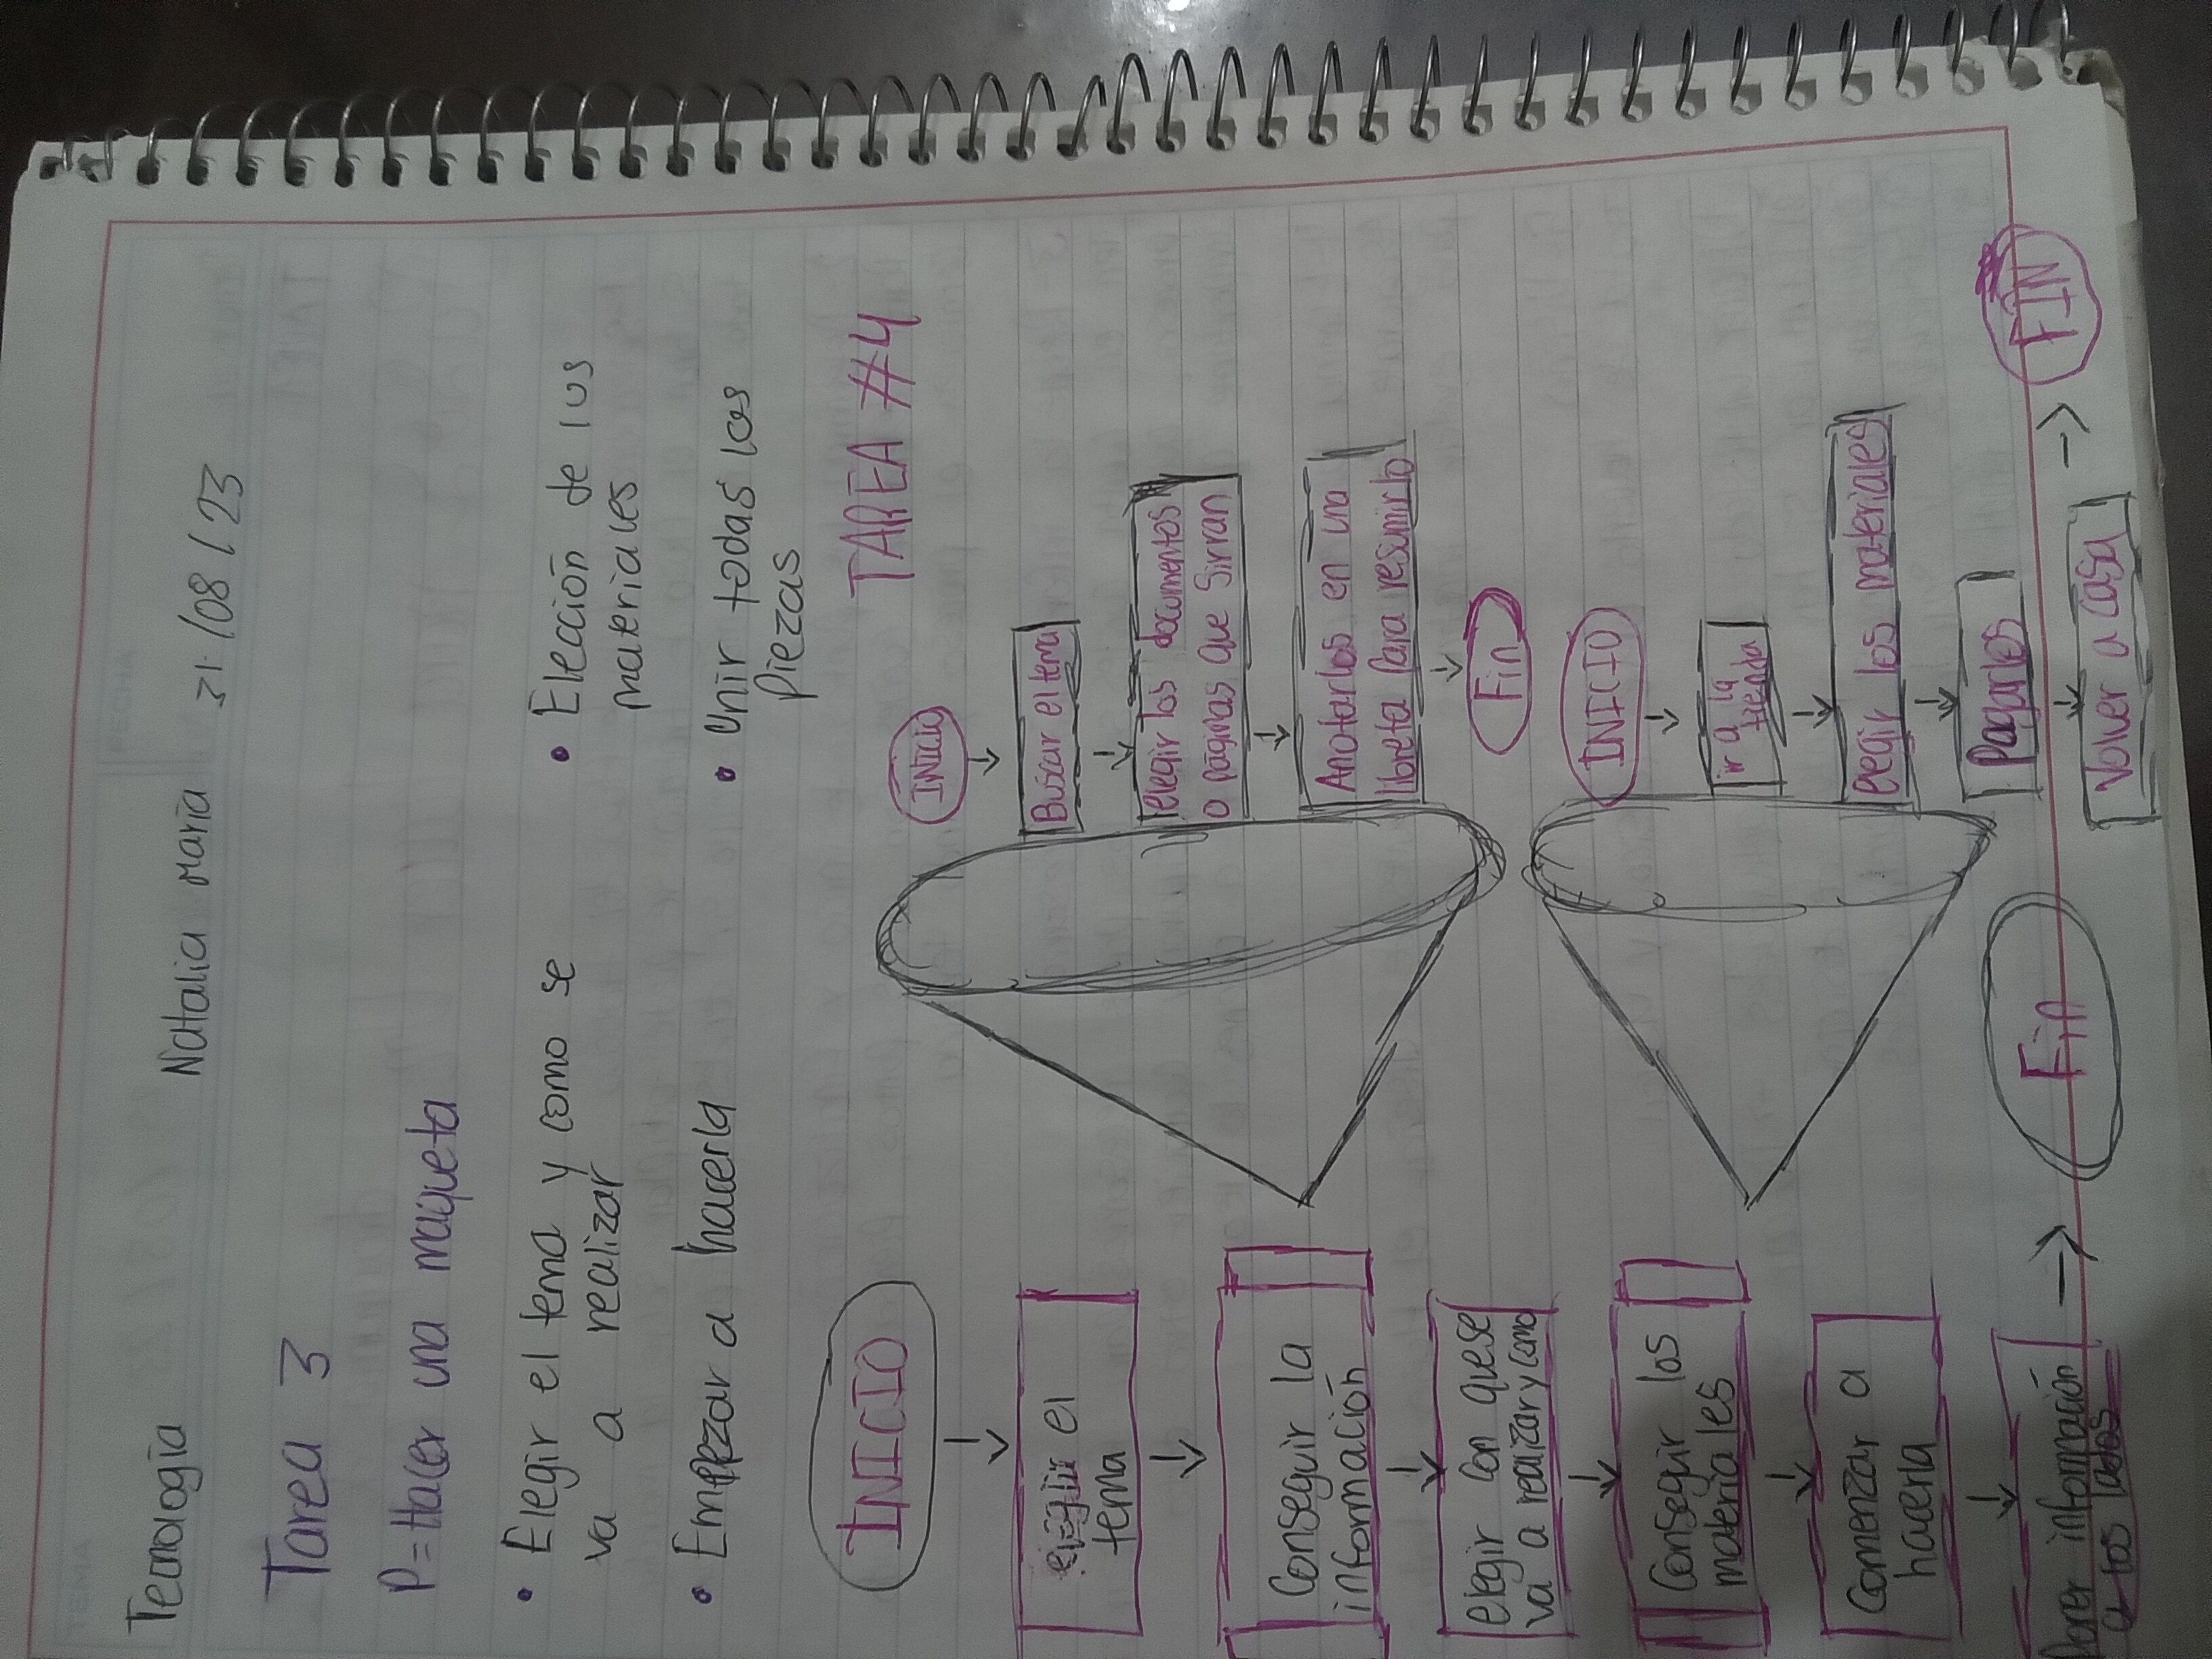 TEMA
FECHA
Tecnología
Natalia María
31/08/23
Tarea 3
P= Hacer una maqueta
• Elegir el tema y como se
va a realizar
• Elección de los
materiales
• Empezar a hacerla
• Unir todas las
Piezas
TAREA #4
INICIO
elegir el
tema
Conseguir la
información
elegir con que se
va a realizar y como
Conseguir los
materiales
Comenzar a
hacerla
Poner información
a los lados
Fin
INICIO
Buscar el tema
elegir los documentos
o páginas que Sirvan
Anotarlos en una
libreta Para resumirlo
Fin
INICIO
ir a la
tienda
elegir los materiales
Pagarlos
Volver a casa
FIN